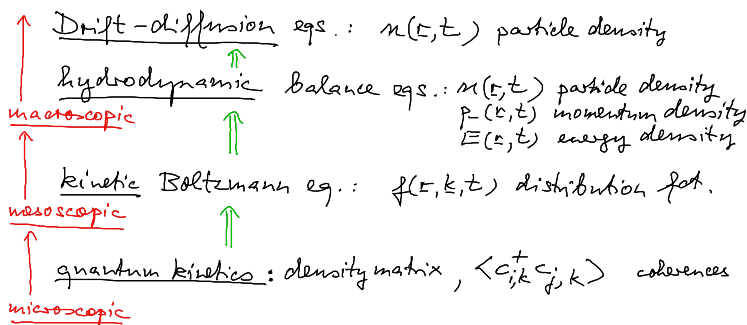 Drift-diffusion eqs.: n(r,t) particle density
hydrodynamic balance eqs.: n(r,t) particle density
macroscopic p(r,t) momentum density
E(r,t) energy density
kinetic Boltzmann eq.: f(r,k,t) distribution fct.
mesoscopic
quantum kinetics: density matrix, <c⁺i,k cj,k> coherences
microscopic